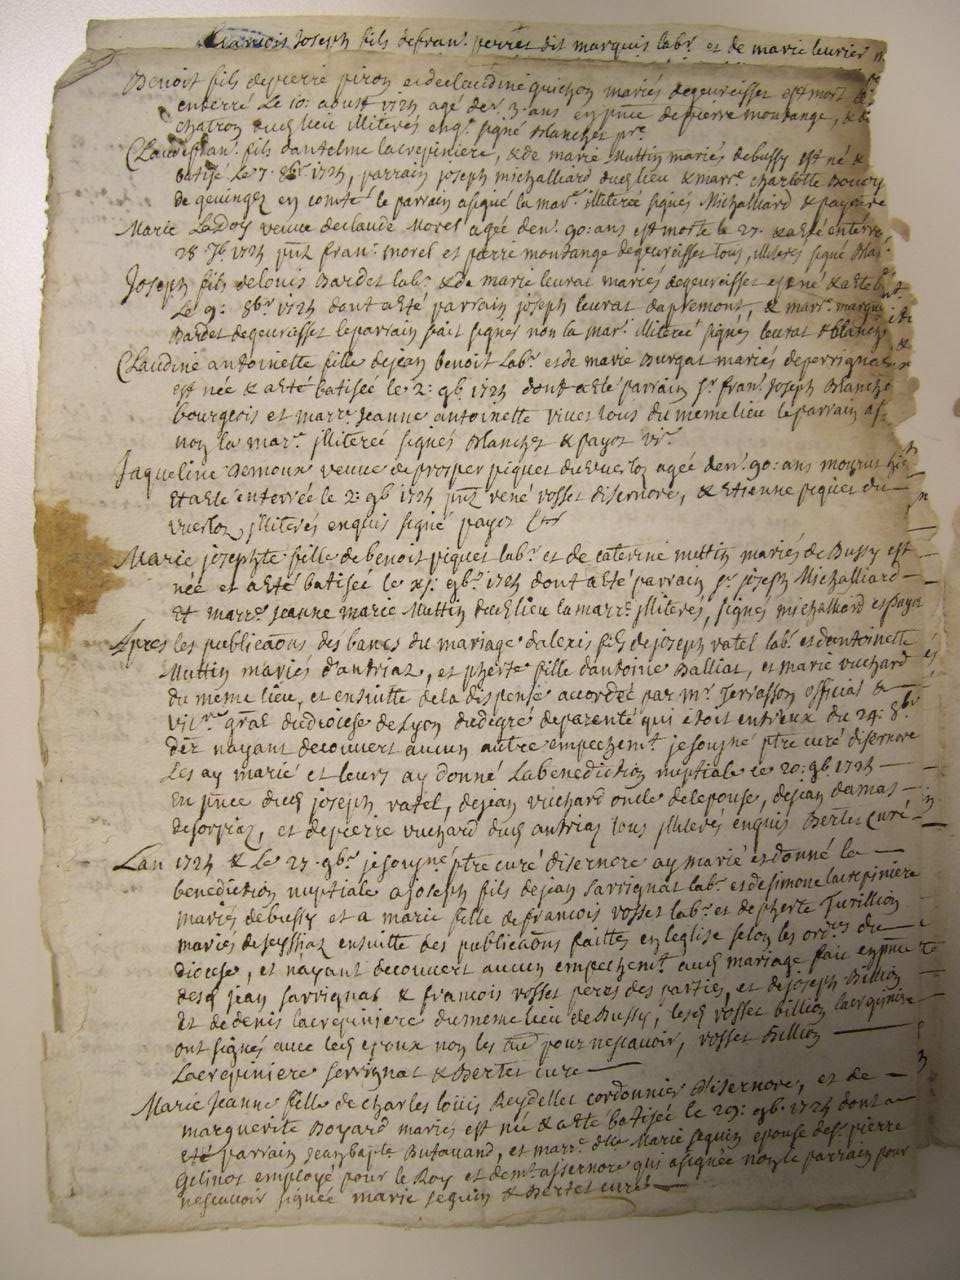 francois Joseph fils de fran: perret dit marquis lab: et de marie leurier
Benoit fils de pierre piron et de claudine quichon mariés de geureisset est mort &
enterré Le 10: aoust 1724 agé den: 3: ans en pnce de pierre moudange, &
chatron dud lieu illiterés enq: signé Blanchet ptre
Claude fran: fils d'antelme lacrepiniere, & de marie Muttin mariés de bussy est né &
batisé Le 7: 8bre 1724, parrain joseph michalliard dud lieu & marre: charlotte
de geuingez en comté le parrain a signé la mar: illiterée signés Michalliard & payot
Marie LaDoy veuve de claude Morel agée den: 90: ans est morte le 27: & a été enterrée
28 7b 1724 pnt fran: morel et pierre moudange de geureisset tous illiterés signé Blan
Joseph fils de louis Bardet lab: & de marie leurat mariés de geureisset est né & a été bat
Le 9: 8br 1724 dont a été parrain joseph leurat d'apremont, & marr:
Bardet de geureisset le parrain sait signés non la mar: illiterée signés leurat & blanchet
Claudine antoinette fille de jean benoit lab: et de marie Burgat mariés de perrignat
est née & a été batisée le 2: 9b 1724 dont a été parrain sr fran: Joseph Blanchet
bourgeois et marre Jeanne antoinette vives tous du meme lieu le parrain a s
non la mar: illiterée signés Blanchet & payot vi:
Jaqueline Demoux veuve de prosper piquet du vuerloz agée den: 90: ans mourut hier
Et a été enterrée le 2: 9b 1724 pnt rené rosset disernore, & Etienne piquet du
vuerloz illiterés enquis signé payot
Marie josephte fille de benoit piquet lab: et de caterine muttin mariés de Bussy est
née et a été batisée le 9b: 1724 dont a été parrain sr joseph Michalliard
Et marre: Jeanne marie Muttin dud lieu la marr: illiterés, signés michalliard et payot
Apres les publicaons des bancs du mariage d'alexis fils de joseph ratel lab: et d'antoinette
Muttin mariés d'antriaz, et pherte fille d'antoine Balliat, et marie vuchard
du meme lieu, et ensuitte de la dispense accordée par mr Terrasson official &
vic gnal du diocese de Lyon du degré de parenté qui étoit entreux du 24: 8br
der nayant decouvert aucun autre empechemt je sousné ptre curé disernore
Les ay marié et leurs ay donné La benediction nuptiale le 20: 9b 1724
En pnce dud joseph ratel, de jean vuchard oncle de lepouse, de jean damas
de sorpiaz, et de pierre vuchard dud antriaz tous illiterés enquis Bertet curé
Lan 1724 & Le 27: 9br je sousné ptre curé disernore ay marié et donné la
benediction nuptiale a Joseph fils de jean sarrignat lab: et de simone lacrepiniere
mariés de bussy et a marie fille de francois rosset lab: et de pherte Turillion
mariés de seyssiaz ensuitte des publicaons faittes en leglise selon les ordres du
diocese, et nayant decouvert aucun empechemt aud mariage fait en pnce
desd jean sarrignat & francois rosset peres des parties, et de joseph Billion
et de denis lacrepiniere du meme lieu de Bussy, lesd rosset billion lacrepiniere
ont signés avec led epoux non les pour ne scavoir, rosset Billion
Lacrepiniere serrignat & Bertet curé
Marie Jeanne fille de charles louis Reydellet cordonnier disernore, et de
marguerite Boyard mariés est née & a été batisée le 29: 9b: 1724 dont a
été parrain jean baptiste Butavand, et marr: dlle Marie seguin epouse de sr pierre
Gelinot employé pour le Roy et demt a isernore qui a signée non le parrain pour
ne scavoir signée marie seguin & Bertet curé